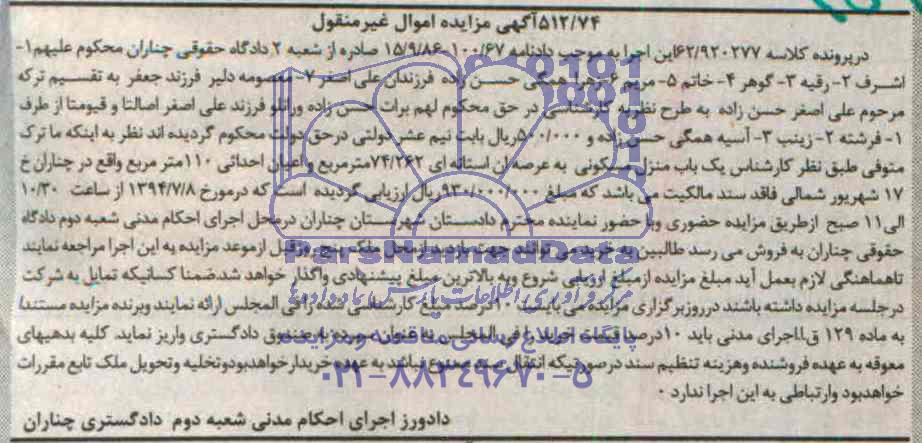 ۵۱۲/۷۴آگهی مزایده اموال غیرمنقول
درپرونده کلاسه ۶۲/۹۲۰۲۷۷این اجرا به موجب دادنامه ۱۰۰/۶۷-۱۵/۹/۸۶ صادره از شعبه ۲ دادگاه حقوقی چناران محکوم علیهم۱-
اشرف ۲-رقیه ۳-گوهر ۴-خاتم ۵-مریم ۶-زهرا همگی حسن زاده فرزندان علی اصغر ۷-معصومه دلیر فرزند جعفر به تقسیم ترکه
مرحوم علی اصغر حسن زاده به طرح نظریه کارشناسی در حق محکوم لهم برات حسن زاده ورانلو فرزند علی اصغر اصالتا و قیمومتا از طرف
۱-فرشته ۲-زینب ۳-آسیه همگی حسن زاده و ۵۰۰/۰۰۰ریال بابت نیم عشر دولتی درحق دولت محکوم گردیده اند نظر به اینکه ما ترک
متوفی طبق نظر کارشناس یک باب منزل مسکونی به عرصه ان استانه ای ۷۴/۲۶۲مترمربع و اعیان احداثی ۱۱۰متر مربع واقع در چناران خ
۱۷ شهریور شمالی فاقد سند مالکیت می باشد که مبلغ ۹۳۰/۰۰۰/۰۰۰ریال ارزیابی گردیده است که درمورخ ۱۳۹۴/۷/۸ از ساعت ۱۰/۳۰
الی۱۱ صبح ازطریق مزایده حضوری وبا حضور نماینده محترم دادستان شهرستان چناران درمحل اجرای احکام مدنی شعبه دوم دادگاه
حقوقی چناران به فروش می رسد طالبین به خرید می توانند جهت بازدید ازمحل ملک پنج روزقبل ازموعد مزایده به این اجرا مراجعه نمایند
تاهماهنگی لازم بعمل آید مبلغ مزایده ازمبلغ ارزیابی شروع وبه بالاترین مبلغ پیشنهادی واگذار خواهد شد ضمنا کسانیکه تمایل به شرکت
درجلسه مزایده داشته باشند درروزبرگزاری مزایده می بایست ۱۰درصد مبلغ کارشناسی شده را فی المجلس ارائه نمایند وبرنده مزایده مستندا
به ماده ۱۲۹ ق.ااجرای مدنی باید ۱۰درصد قیمت اموال را فی المجلس به عنوان سپرده به صندوق دادگستری واریز نماید. کلیه بدهیهای
معوقه به عهده فروشنده وهزینه تنظیم سند درصورتیکه انتقال سند ممنوع نباشد به عهده خریدارخواهدبودوتخلیه وتحویل ملک تابع مقررات
خواهدبود وارتباطی به این اجرا ندارد .
دادورز اجرای احکام مدنی شعبه دوم دادگستری چناران
ParsNamadData
پایگاه اطلاع رسانی مناقصه و مزایده
۰۲۱-۸۸۳۴۹۶۷۰-۵